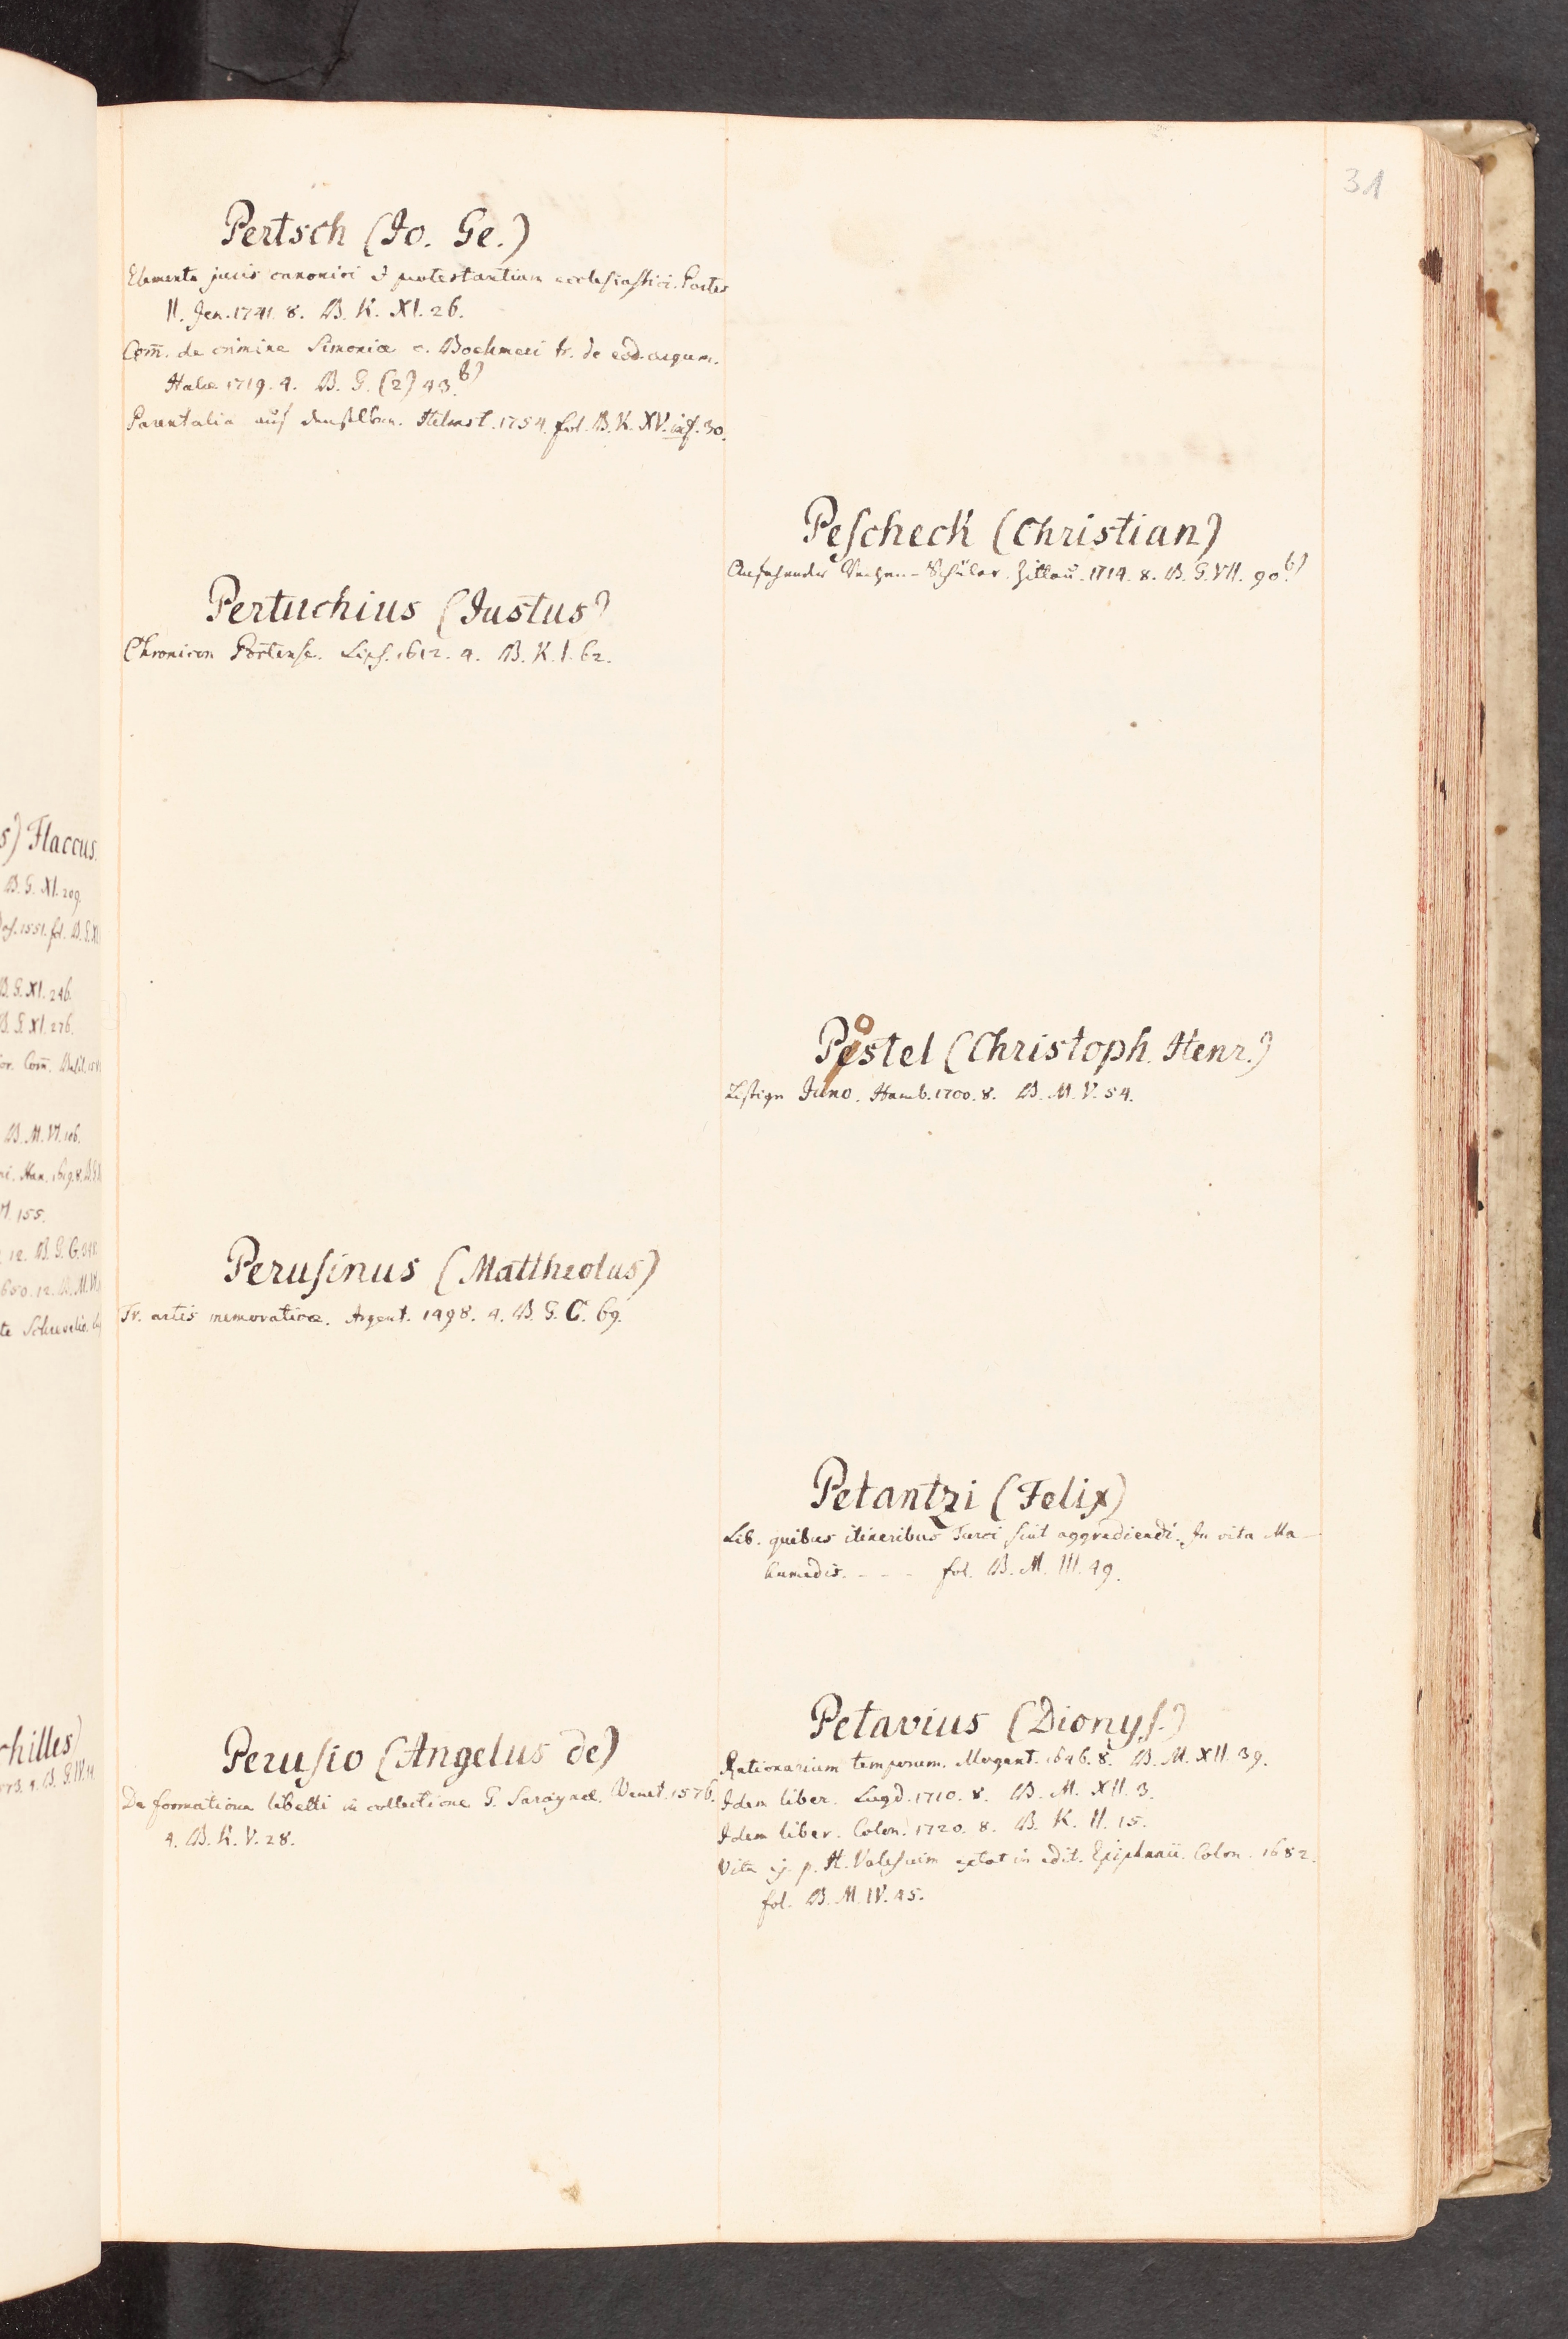 31
Pertsch (Jo. Ge.)
Elementa juris canonici & protestantium ecclesiastici. Partes
II. Jen. 1741. 8. B. K. XI. 26.
Com̄. de crimine Simoniæ c. Boehmeri tr. de eod. argum.
Halæ 1719. 4. B. G. (2) 43. b)
Parentalia auf denselben. Helmst. 1754. fol. B. K. XV. inf. 30.
Pertuchius (Justus)
Chronicon Portense. Lips. 1612. 4. B. K. I. 62.
Perusinus (Mattheolus)
Tr. artis memorativæ. Argent. 1498. 4. B. G. C. 69.
Perusio (Angelus de)
De formatione libelli in collectione G. Saraynæ. Venet. 1576.
4. B. K. V. 28.
Pescheck (Christian)
Anfahender Rechen-Schüler. Zittau. 1714. 8. B. G. VII. 90. b)
Postel (Christoph. Henr.)
Listige Juno. Hamb. 1700. 8. B. M. V. 54.
Petantzi (Felix)
Lib. quibus itineribus Turci sint aggrediendi. In vita Ma-
humedis. - - - fol. B. M. III. 49.
Petavius (Dionys.)
Rationarium temporum. Mogunt. 1646. 8. B. M. XII. 39.
Idem liber. Lugd. 1710. 8. B. M. XII. 3.
Idem liber. Colon. 1720. 8. B. K. II. 15.
Vita ej. p. H. Valesium extat in edit. Epiphanii. Colon. 1682.
fol. B. M. IV. 45.
s) Flaccus.
B. G. XI. 209.
1551. fol. B. G. XI
B. G. XI. 246.
B. G. XI. 276.
B. M. VI. 106.
155.
12. B. G. G.
650. 12. B. M. VI
chilles)